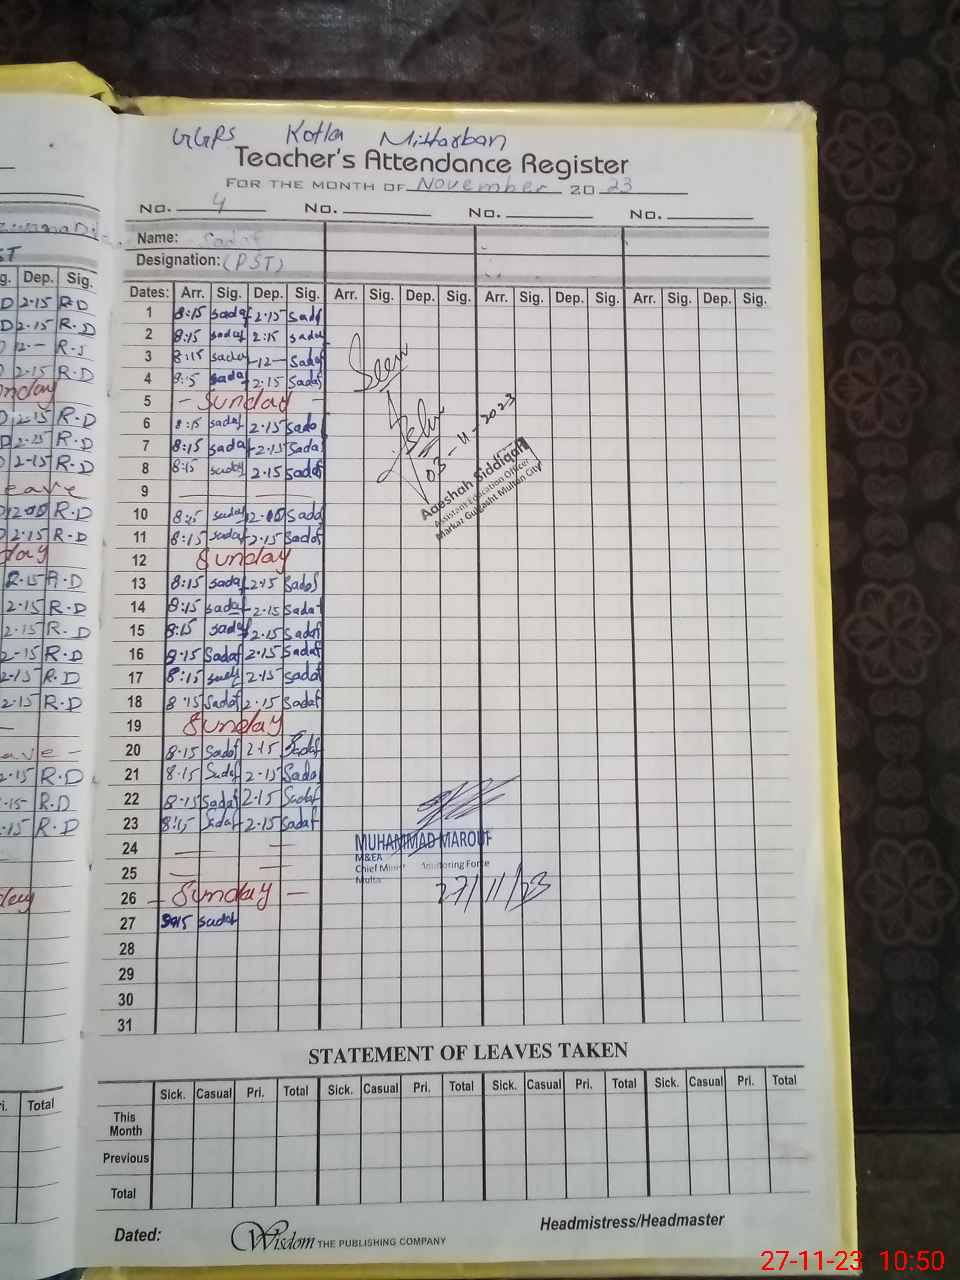 GGPS Kotla Mitharban
Teacher's Attendance Register
FOR THE MONTH OF November 2023
No. 4 No. No. No.
Name: Sadaf
Designation: (PST)
Dates: Arr. Sig. Dep. Sig. Arr. Sig. Dep. Sig. Arr. Sig. Dep. Sig. Arr. Sig. Dep. Sig.
1 8:15 sadaf 2·15 sadaf
2 8:15 sadaf 2:15 sadaf
3 8:15 sadaf -12- sadaf
4 8:15 sadaf 2.15 sadaf
5 - Sunday -
6 8:15 sadaf 2·15 sadaf
7 8:15 sadaf 2·15 Sadaf
8 8:15 sadaf 2.15 sadaf
9
10 8:15 sadaf 12-00 Sadaf
11 8:15 sadaf 2.15 Sadaf
12 Sunday
13 8:15 sadaf 2·15 Sadaf
14 8:15 sadaf 2.15 Sadaf
15 8:15 sadaf 2.15 Sadaf
16 8·15 Sadaf 2.15 Sadaf
17 8:15 sadaf 2.15 sadaf
18 8·15 Sadaf 2.15 Sadaf
19 Sunday
20 8·15 Sadaf 2:15 Sadaf
21 8·15 Sadaf 2-15 Sadaf
22 8·15 Sadaf 2·15 Sadaf
23 8:15 Sadaf 2.15 sadaf
24
25
26 - Sunday -
27 8:15 sadaf
28
29
30
31
Seen
03-11-2023
Aaeshah Siddiqah
Assistant Education Officer
Markaz Gulgasht Multan City
MUHAMMAD MAROUF
M&EA
Chief Monitoring Force
27/11/23
STATEMENT OF LEAVES TAKEN
Sick. Casual Pri. Total Sick. Casual Pri. Total Sick. Casual Pri. Total Sick. Casual Pri. Total
This Month
Previous
Total
Dated:
Headmistress/Headmaster
Wisdom THE PUBLISHING COMPANY
27-11-23 10:50